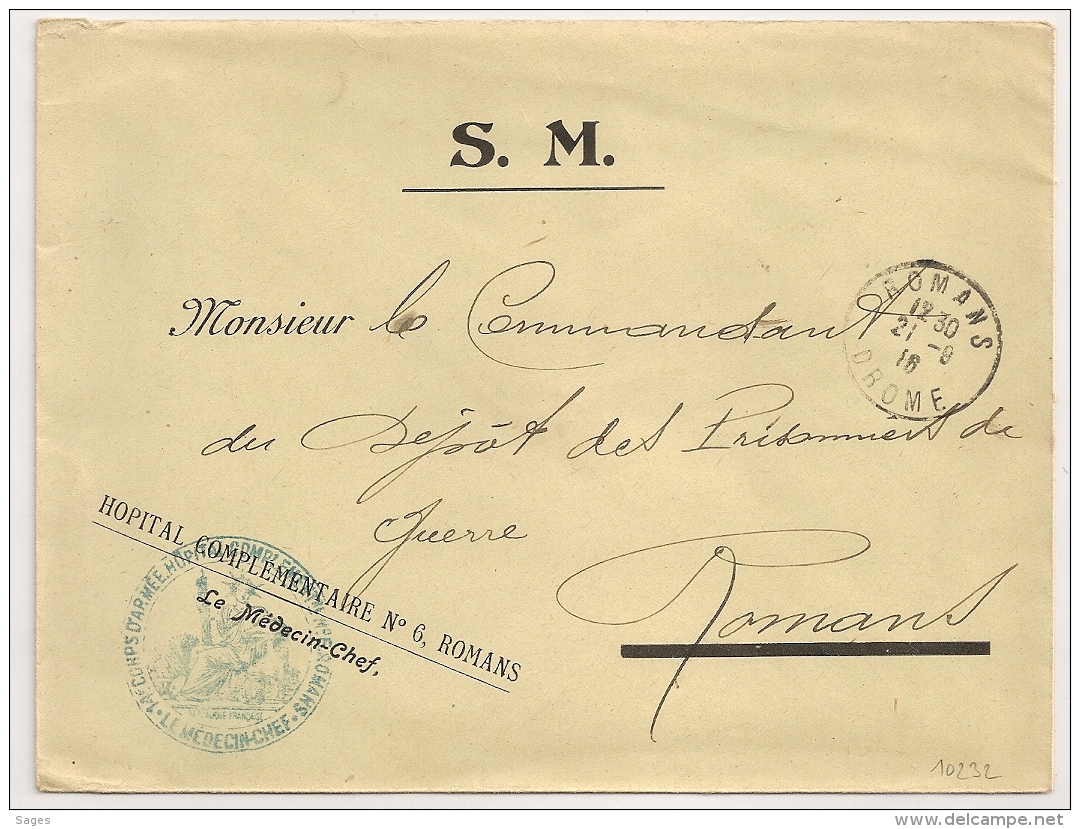 S. M.
Monsieur le Commandant
du Dépôt des Prisonniers de
Guerre
Romans
ROMANS
12 30
21 -8
16
DROME
HOPITAL COMPLEMENTAIRE N° 6, ROMANS
Le Médecin-Chef,
CORPS D'ARMÉE. HOPITAL COMPLEMENTAIRE N° 6 ROMANS
• LE MÉDECIN-CHEF •
10232
Sages
www.delcampe.net